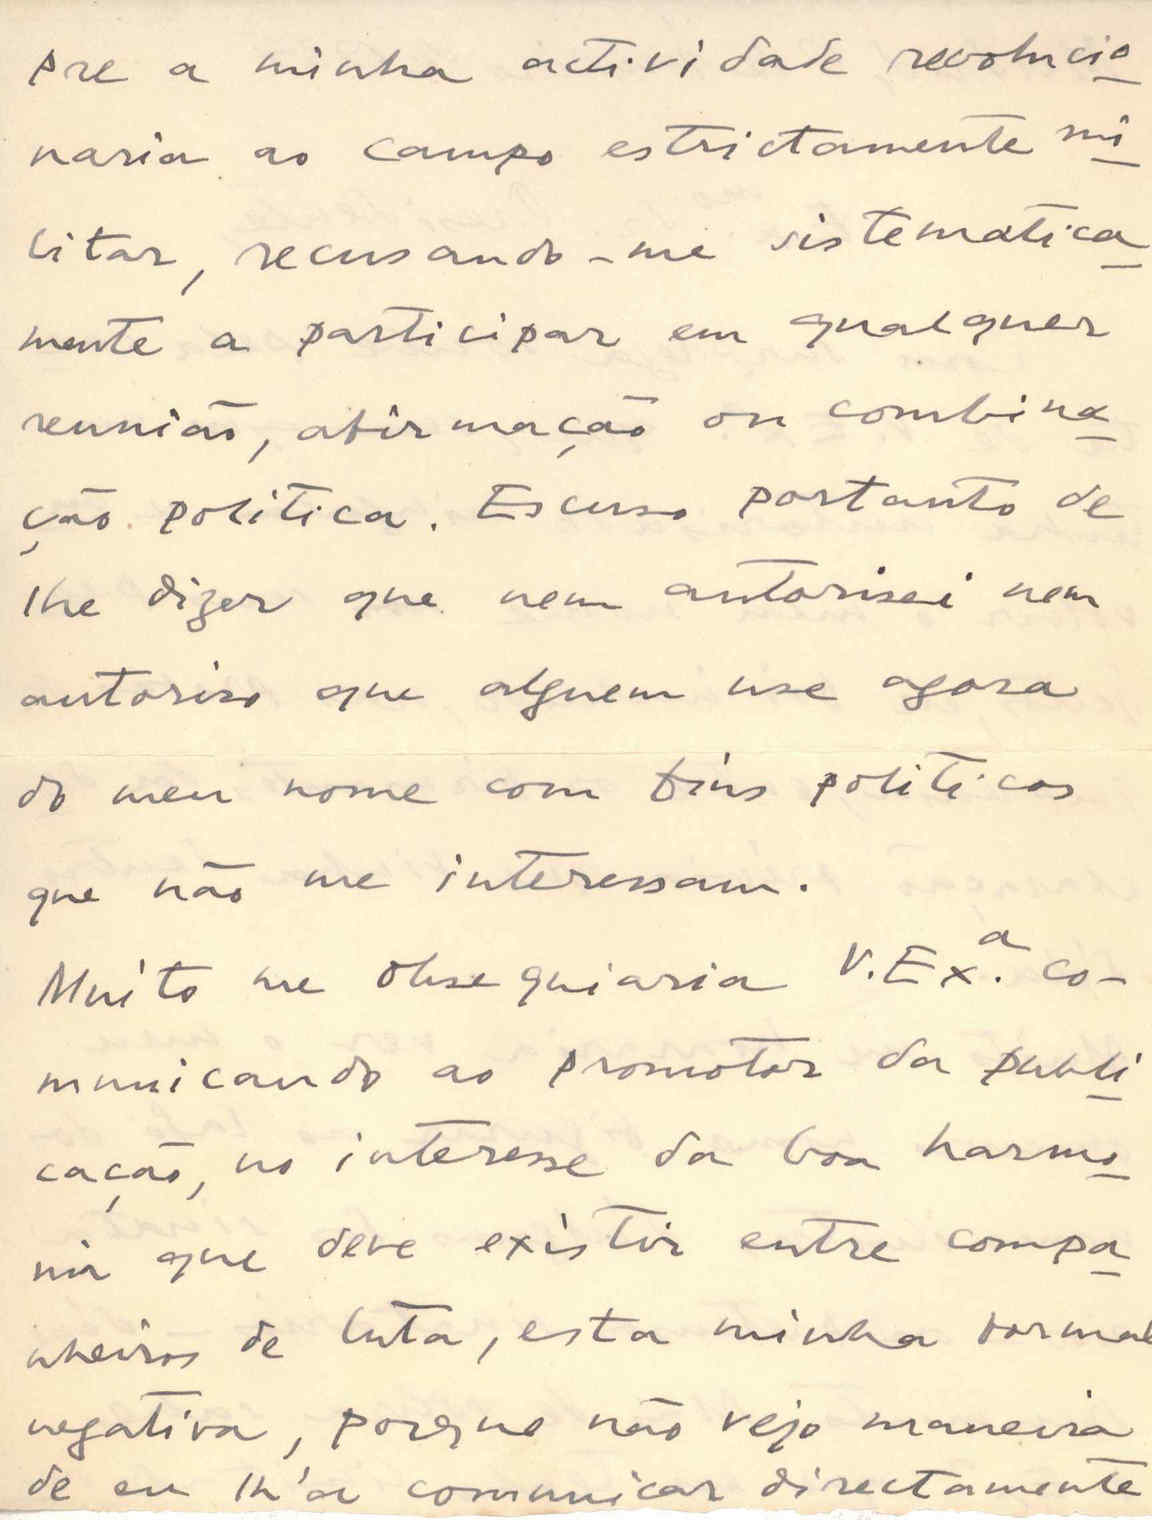 pre a minha actividade revolucio
naria ao campo estrictamente mi
litar, recusando-me sistematica
mente a participar em qualquer
reunião, afirmação ou combina
ção politica. Escuso portanto de
lhe dizer que nem autorisei nem
autoriso que alguem use agora
do meu nome com fins politicos
que não me interessam.
Muito me obsequiaria V.Ex.ª co-
municando ao promotor da publi
cação, no interesse da boa harmo
nia que deve existir entre compa
nheiros de luta, esta minha formal
negativa, porque não vejo maneira
de eu lh'a comunicar directamente